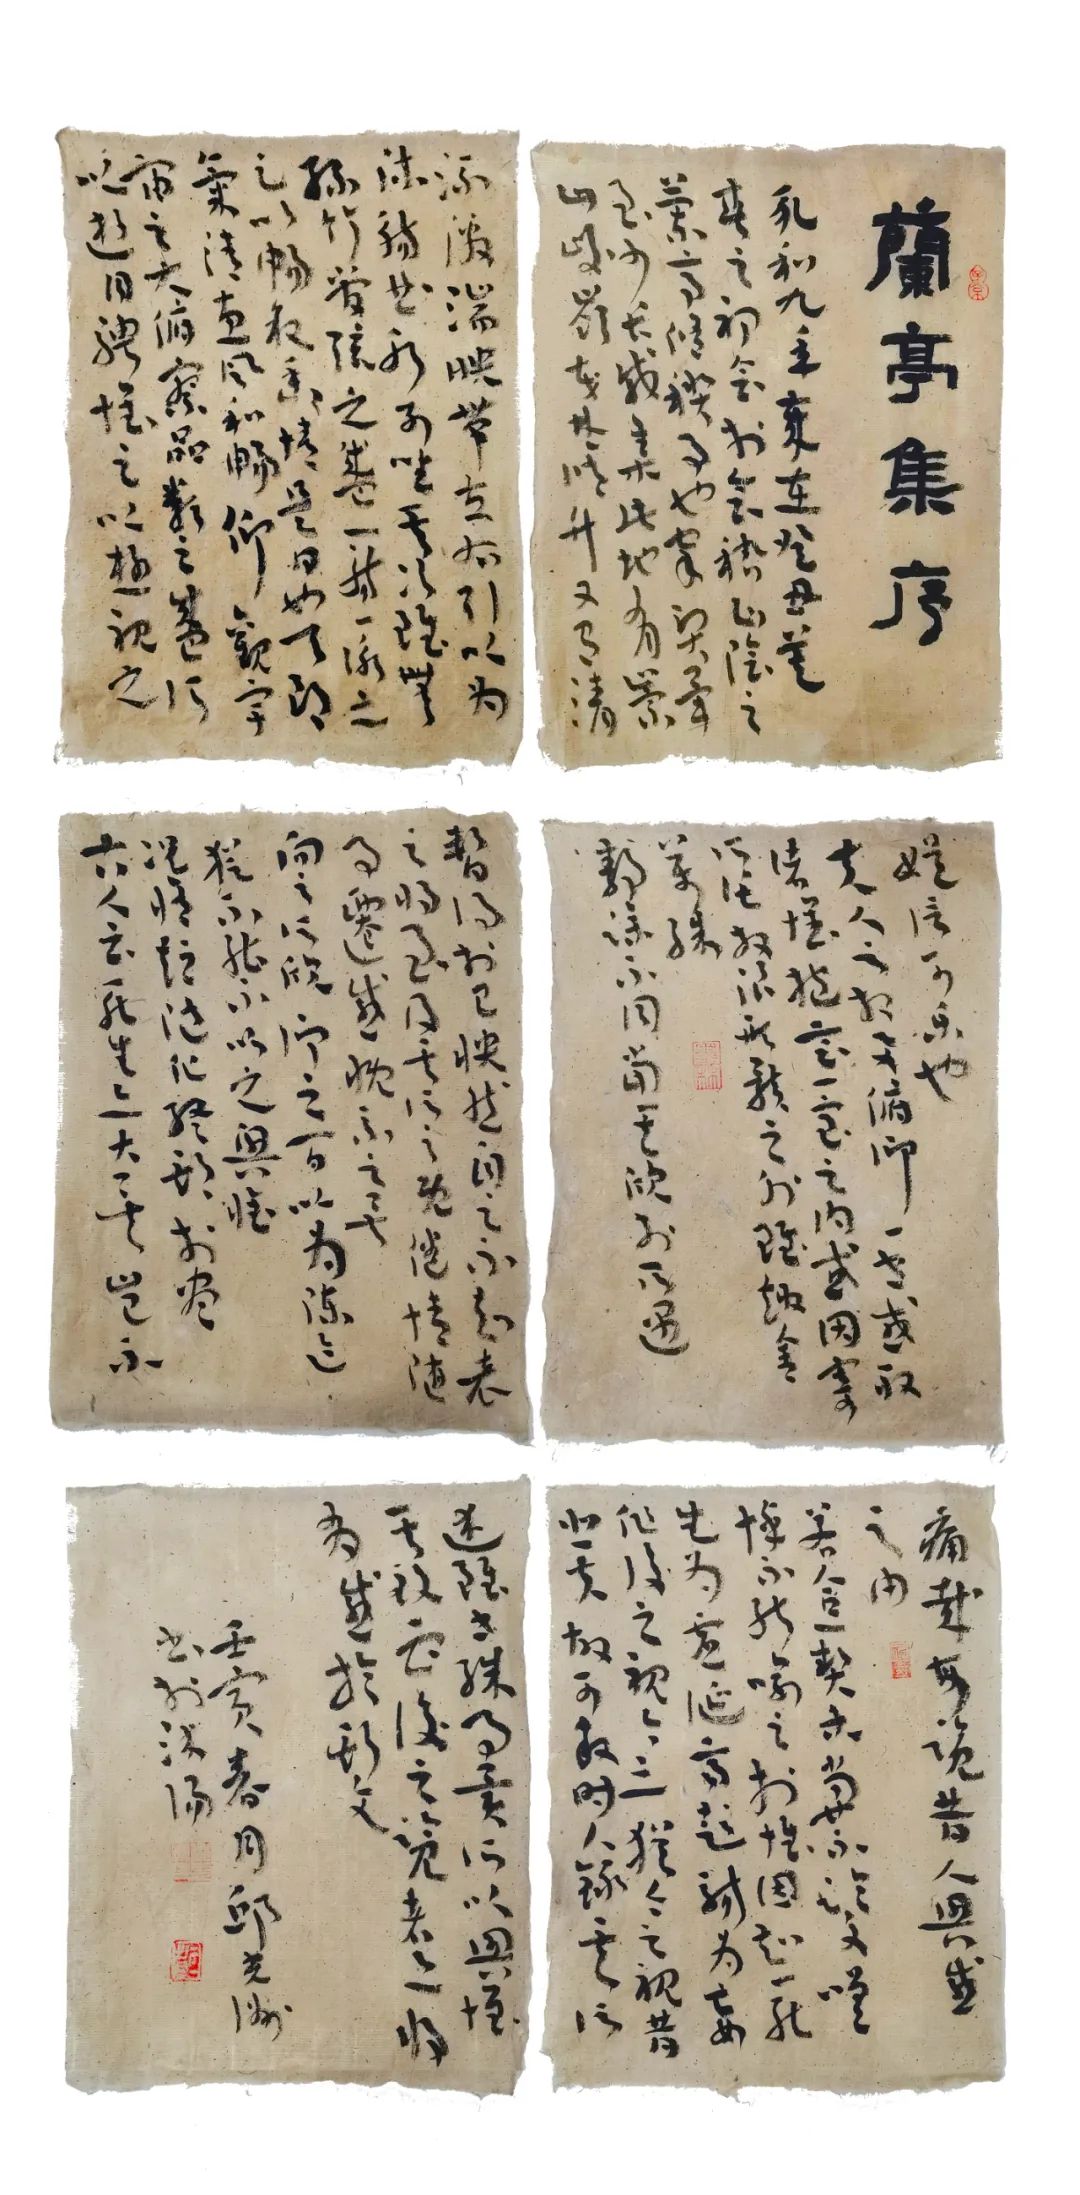 蘭亭集序
永和九年歲在癸丑暮
春之初會於會稽山陰之
蘭亭脩禊事也羣賢畢
至少長咸集此地有崇
山峻嶺茂林脩竹又有清
流激湍映帶左右引以為
流觴曲水列坐其次雖無
絲竹管弦之盛一觴一詠亦
足以暢敘幽情是日也天朗
氣清惠風和暢仰觀宇
宙之大俯察品類之盛所
以遊目騁懷足以極視之
娛信可樂也
夫人之相與俯仰一世或取
諸懷抱悟言一室之內或因寄
所託放浪形骸之外雖趣舍
萬殊
靜躁不同當其欣於所遇
暫得於己快然自足不知老
之將至及其所之既倦情隨
事遷感慨係之矣
向之所欣俛仰之間以為陳迹
猶不能不以之興懷
況脩短隨化終期於盡
古人云死生亦大矣豈不
痛哉每覽昔人興感
之由
若合一契未嘗不臨文嗟
悼不能喻之於懷固知一死
生為虛誕齊彭殤為妄
作後之視今亦猶今之視昔
悲夫故列敘時人錄其所
述雖世殊事異所以興懷
其致一也後之覽者亦將
有感於斯文
壬寅春月邱光
書於沭陽